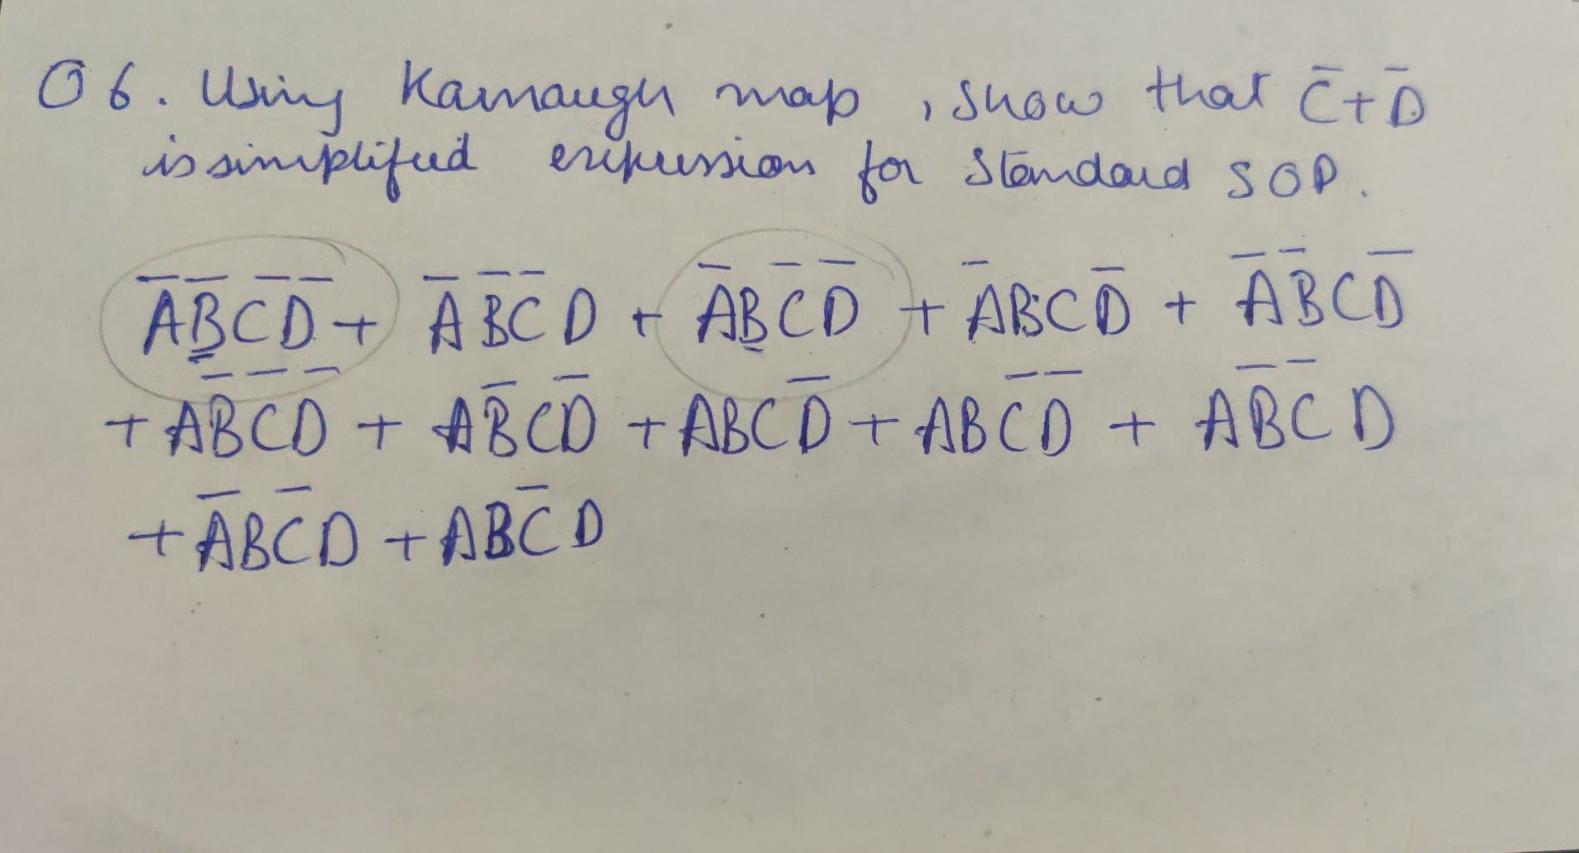 Q 6. Using Karnaugh map, show that C̅+D̅
is simplified expression for standard SOP.
A̅B̅C̅D̅ + A̅B̅C̅D + A̅BC̅D̅ + A̅BCD̅ + A̅B̅CD̅
+ AB̅C̅D̅ + AB̅CD̅ + ABCD̅ + ABC̅D̅ + AB̅C̅D
+ A̅BC̅D + ABC̅D